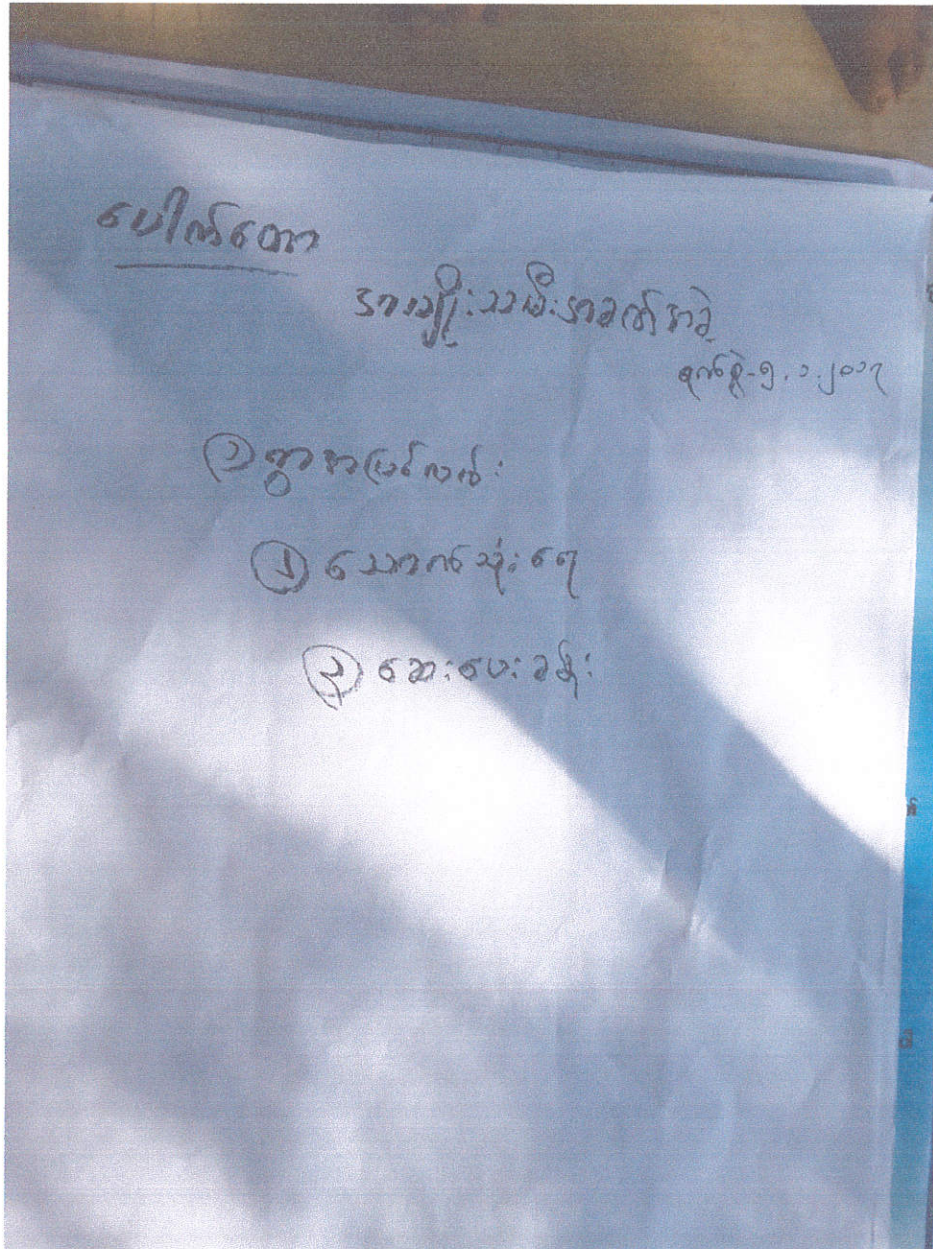 ပေါက်တော
အမျိုးသမီးအခက်အခဲ
ရက်စွဲ-၅.၁.၂၀၁၇
① ရွာအပြင်လမ်း
② သောက်သုံးရေ
③ ဆေးပေးခန်း